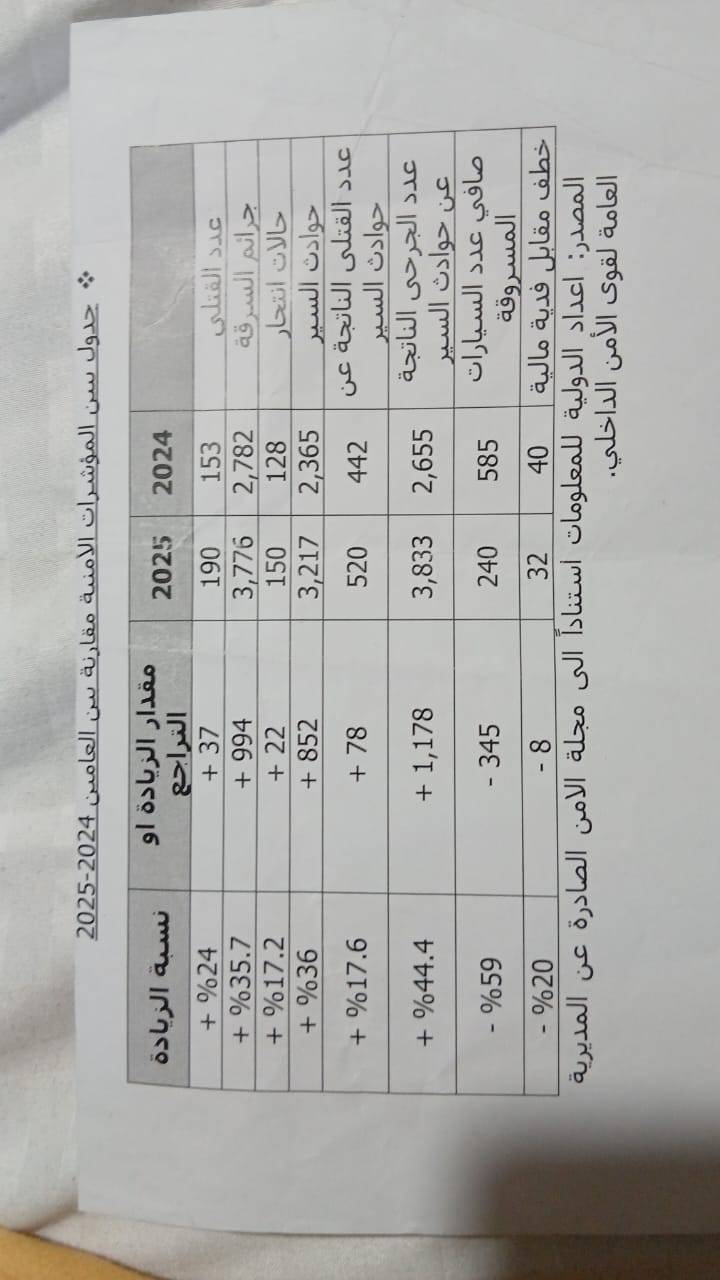 ❖ جدول يبين المؤشرات الامنية مقارنة بين العامين 2024-2025
2024 2025 مقدار الزيادة او التراجع نسبة الزيادة
عدد القتلى 153 190 + 37 + %24
جرائم السرقة 2,782 3,776 + 994 + %35.7
حالات انتحار 128 150 + 22 + %17.2
حوادث السير 2,365 3,217 + 852 + %36
عدد القتلى الناتجة عن حوادث السير 442 520 + 78 + %17.6
عدد الجرحى الناتجة عن حوادث السير 2,655 3,833 + 1,178 + %44.4
صافي عدد السيارات المسروقة 585 240 - 345 - %59
خطف مقابل فدية مالية 40 32 - 8 - %20
المصدر: اعداد الدولية للمعلومات استناداً الى مجلة الامن الصادرة عن المديرية
العامة لقوى الأمن الداخلي.